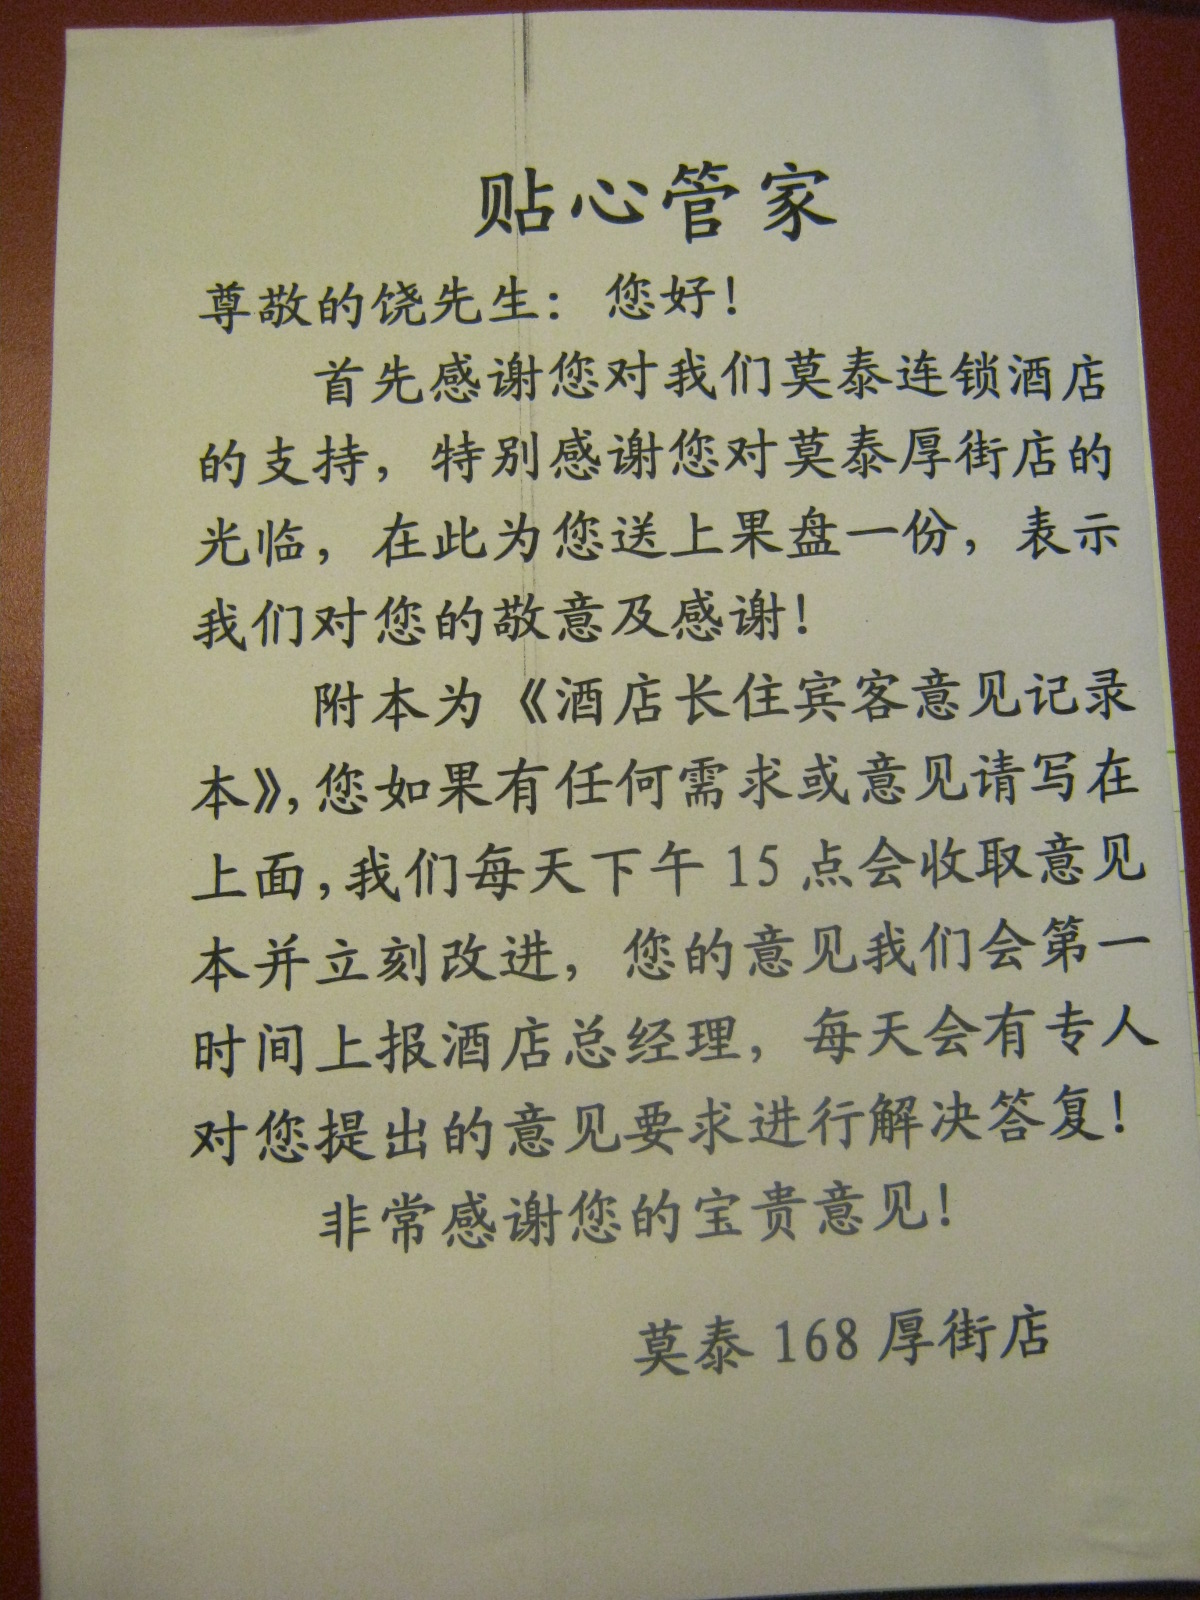 贴心管家
尊敬的饶先生：您好！
首先感谢您对我们莫泰连锁酒店
的支持，特别感谢您对莫泰厚街店的
光临，在此为您送上果盘一份，表示
我们对您的敬意及感谢！
附本为《酒店长住宾客意见记录
本》，您如果有任何需求或意见请写在
上面，我们每天下午 15 点会收取意见
本并立刻改进，您的意见我们会第一
时间上报酒店总经理，每天会有专人
对您提出的意见要求进行解决答复！
非常感谢您的宝贵意见！
莫泰 168 厚街店